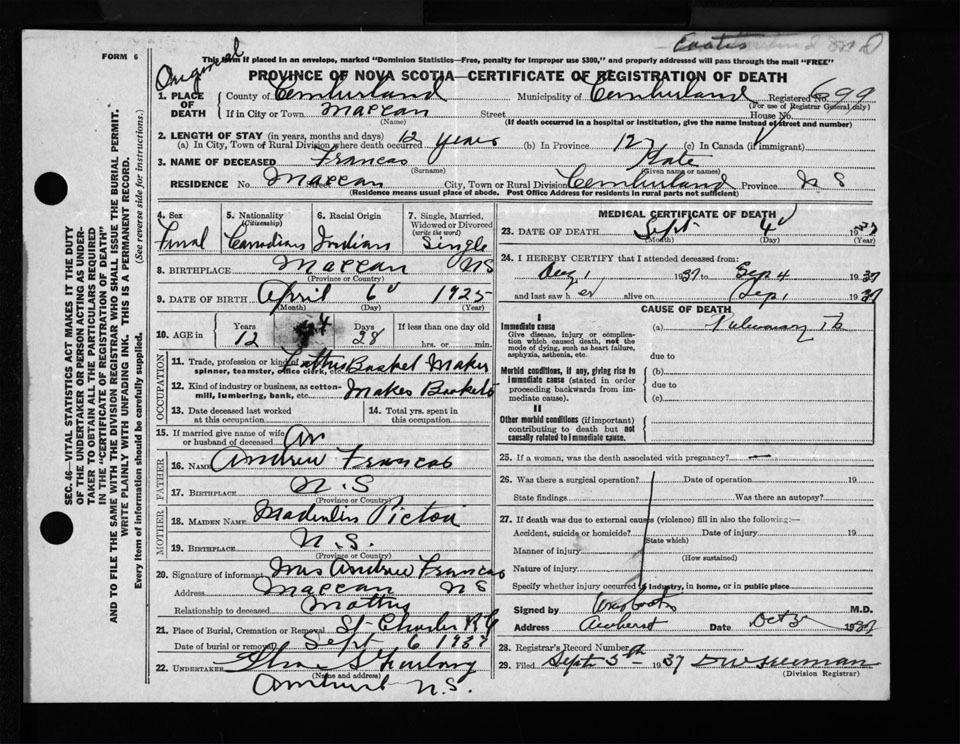 FORM 6
Original
This form if placed in an envelope, marked "Dominion Statistics—Free, penalty for improper use $300," and properly addressed will pass through the mail "FREE"
PROVINCE OF NOVA SCOTIA—CERTIFICATE OF REGISTRATION OF DEATH
1. PLACE OF DEATH
County of Cumberland Municipality of Cumberland Registered No. 699
(For use of Registrar General only)
If in City or Town Maccan Street House No.
(Name) (If death occurred in a hospital or institution, give the name instead of street and number)
2. LENGTH OF STAY (in years, months and days)
(a) In City, Town of Rural Division where death occurred 12 years (b) In Province 12 (c) In Canada (if immigrant)
3. NAME OF DECEASED Francas Kate
(Surname) (Given name or names)
RESIDENCE No. Maccan Street City, Town or Rural Division Cumberland Province NS
(Residence means usual place of abode. Post Office Address for residents in rural parts not sufficient)
4. Sex
5. Nationality (Citizenship) Canadian
6. Racial Origin Indian
7. Single, Married, Widowed or Divorced (write the word) Single
8. BIRTHPLACE Maccan NS
(Province or Country)
9. DATE OF BIRTH April 6 1925
(Month) (Day) (Year)
10. AGE in Years 12 Days 28 If less than one day old
hrs. or min.
OCCUPATION
11. Trade, profession or kind of work as spinner, teamster, office clerk, etc. Basket Maker
12. Kind of industry or business, as cotton-mill, lumbering, bank, etc. Makes Baskets
13. Date deceased last worked at this occupation
14. Total yrs. spent in this occupation
15. If married give name of wife or husband of deceased
FATHER
16. NAME Andrew Francas
17. BIRTHPLACE N.S
(Province or Country)
MOTHER
18. MAIDEN NAME Pictou
19. BIRTHPLACE N.S.
(Province or Country)
20. Signature of informant Mrs Andrew Francas
Address Maccan NS
Relationship to deceased Mother
21. Place of Burial, Cremation or Removal St Charles
Date of burial or removal Sept 6 1937
22. UNDERTAKER
(Name and address)
Amherst N.S.
MEDICAL CERTIFICATE OF DEATH
23. DATE OF DEATH Sept 4 1937
(Month) (Day) (Year)
24. I HEREBY CERTIFY that I attended deceased from:
1 1937 to Sep 4 1937
and last saw her alive on Sep 1 1937
CAUSE OF DEATH
I
Immediate cause
Give disease, injury or complication which caused death, not the mode of dying, such as heart failure, asphyxia, asthenia, etc.
(a) Pulmonary Tb
due to
Morbid conditions, if any, giving rise to immediate cause (stated in order proceeding backwards from immediate cause).
(b)
due to
(c)
II
Other morbid conditions (if important) contributing to death but not causally related to immediate cause.
25. If a woman, was the death associated with pregnancy? —
26. Was there a surgical operation? Date of operation 19
State findings Was there an autopsy?
27. If death was due to external causes (violence) fill in also the following:—
Accident, suicide or homicide? Date of injury 19
(State which)
Manner of injury
(How sustained)
Nature of injury
Specify whether injury occurred in industry, in home, or in public place
Signed by M.D.
Address Amherst Date Oct 3 1937
28. Registrar's Record Number
29. Filed Sept 5th 1937
(Division Registrar)
SEC. 46—VITAL STATISTICS ACT MAKES IT THE DUTY
OF THE UNDERTAKER OR PERSON ACTING AS UNDER-
TAKER TO OBTAIN ALL THE PARTICULARS REQUIRED
IN THE "CERTIFICATE OF REGISTRATION OF DEATH"
AND TO FILE THE SAME WITH THE DIVISION REGISTRAR WHO SHALL ISSUE THE BURIAL PERMIT.
WRITE PLAINLY WITH UNFADING INK. THIS IS A PERMANENT RECORD.
Every item of information should be carefully supplied. (See reverse side for instructions.)